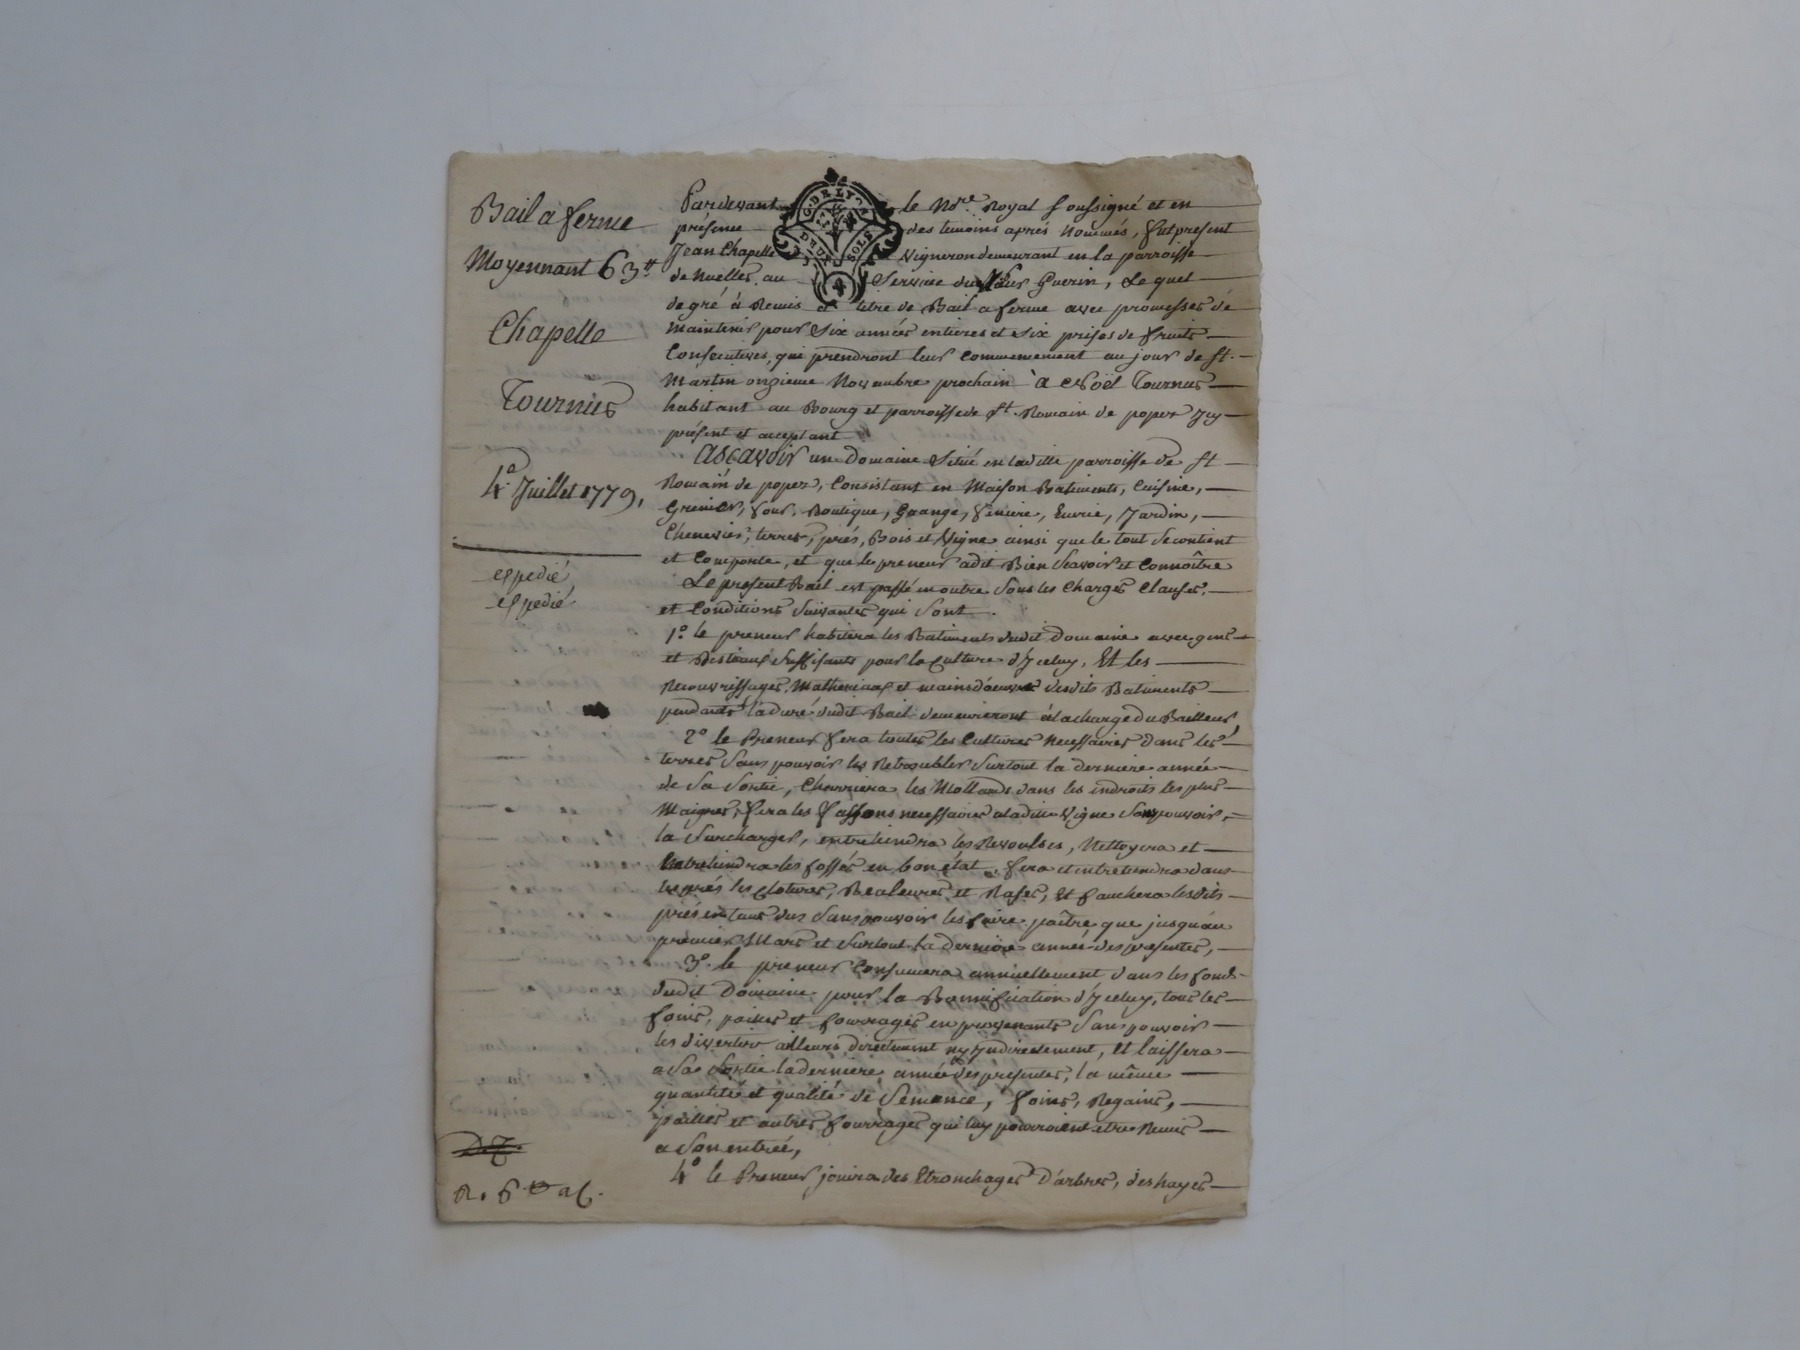 Bail a ferme
Moyennant 63 ₶
Chapelle
Tournus
4e. Juillet 1779,
expedié
expedié
G. DE LYON
DEUX SOLS
Pardevant le No.re Royal soussigné et en
présence des temoins aprés Nommés, fut present
Jean Chapelle Vigneron demeurant en la parroisse
de Nuelles au Service du Sieur Guerin, Lequel
de gré à Remis et titre de Bail a ferme avec promesses de
Maintenir pour Six années entieres et Six prises de fruits
Consecutives, qui prendront leur Commencement au jour de St.
Martin onzieme Novembre prochain à Noël Tournus
habitant au Bourg et parroisse de St. Romain de popez Icy
présent et acceptant
Ascavoir un Domaine Situé en ladite parroisse de St
Romain de popez, Consistant en Maison Batiments, Cuisine,
Grenier, four, Boutique, Grange, feniere, Eurie, Jardin,
Chenevier, terres, prés, Bois et Vigne ainsi que le tout Se contient
et Comporte, et que le preneur a dit Bien Scavoir et Connoître
Le present Bail est passé en outre Sous les Charges Clauses
et Conditions Suivantes qui Sont.
1.o le preneur habitera les Batiments dudit Domaine avec gens
et Bestiaux Suffisants pour la Culture d'Iceluy, Et les
Recouvrissages, Matheriaux et mains d'oeuvre desdits Batiments
pendants la duré dudit Bail demeureront à la charge du Bailleur,
2o le Preneur fera toutes les Cultures Necessaires dans les
terres Sans pouvoir les Retroubler Surtout la derniere année
de Sa Sortie, Charriera les Mollards dans les indroits les plus
Maigres, fera les fassons necessaires a ladite Vigne Sans pouvoir,
la Surcharger, entretiendra les Revoultes, Nettoyera et
Entretiendra les fossés en bon état, fera et entretiendra dans
les prés les Clotures, Bealeures et Rases, Et fauchera lesdits
prés en tems dus Sans pouvoir les faire paître que jusqu'au
premier Mars et Surtout la derniere année des presentes,
3o. le preneur Consumera annuellement dans les fonds
dudit Domaine pour la Bonnification d'Iceluy, tous les
foins, pailles et fourrages en provenants Sans pouvoir
les divertir ailleurs directement ny Indirectement, Et laissera
a Sa Sortie la derniere année des presentes, la même
quantité et qualité de Semence, foins, Regains,
pailles et autres fourrages qui luy pourroient etre Remis
a Son entrée,
4o le Preneur jouira des Etronchages d'arbres, des hayes